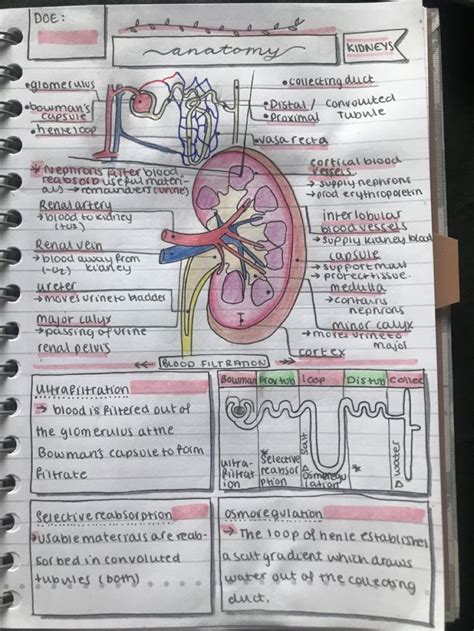 DOE:
anatomy
KIDNEYS
•glomerulus
•bowman's
capsule
•henle loop
•collecting duct
•Distal / convoluted
•Proximal tubule
•vasa recta
* Nephrons filter blood
reabsorb useful materi-
als → remainders (urine)
Renal artery
→ blood to kidney
(+O2)
Renal vein
→ blood away from
(-O2) kidney
ureter
→ moves urine to bladder
major calyx
→ passing of urine
renal pelvis
cortical blood
vessels
→ supply nephrons
→ prod erythropoietin
interlobular
blood vessels
→ supply kidney blood
capsule
→ support mass
→ protect tissue
medulla
→ contains
nephrons
minor calyx
→ moves urine to
major
cortex
BLOOD FILTRATION
ultrafiltration
→ blood is filtered out of
the glomerulus at the
Bowman's capsule to form
filtrate
Bowman Prox tub loop Dis tub Collec
ultra-
filtrat
ion
Selective
reabsor
ption
salt
Osmoregu
lation
*
water
Selective reabsorption
→ usable materials are reab-
sorbed in convoluted
tubules (both)
osmoregulation
→ The loop of henle establishes
a salt gradient which draws
water out of the collecting
duct.